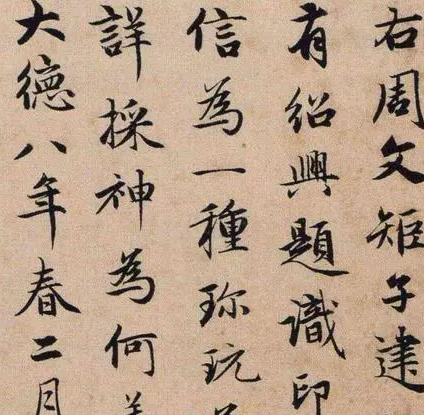 右周文矩子建
有绍興題識印
信為一種珎玩
詳採神為何
大德八年春二月